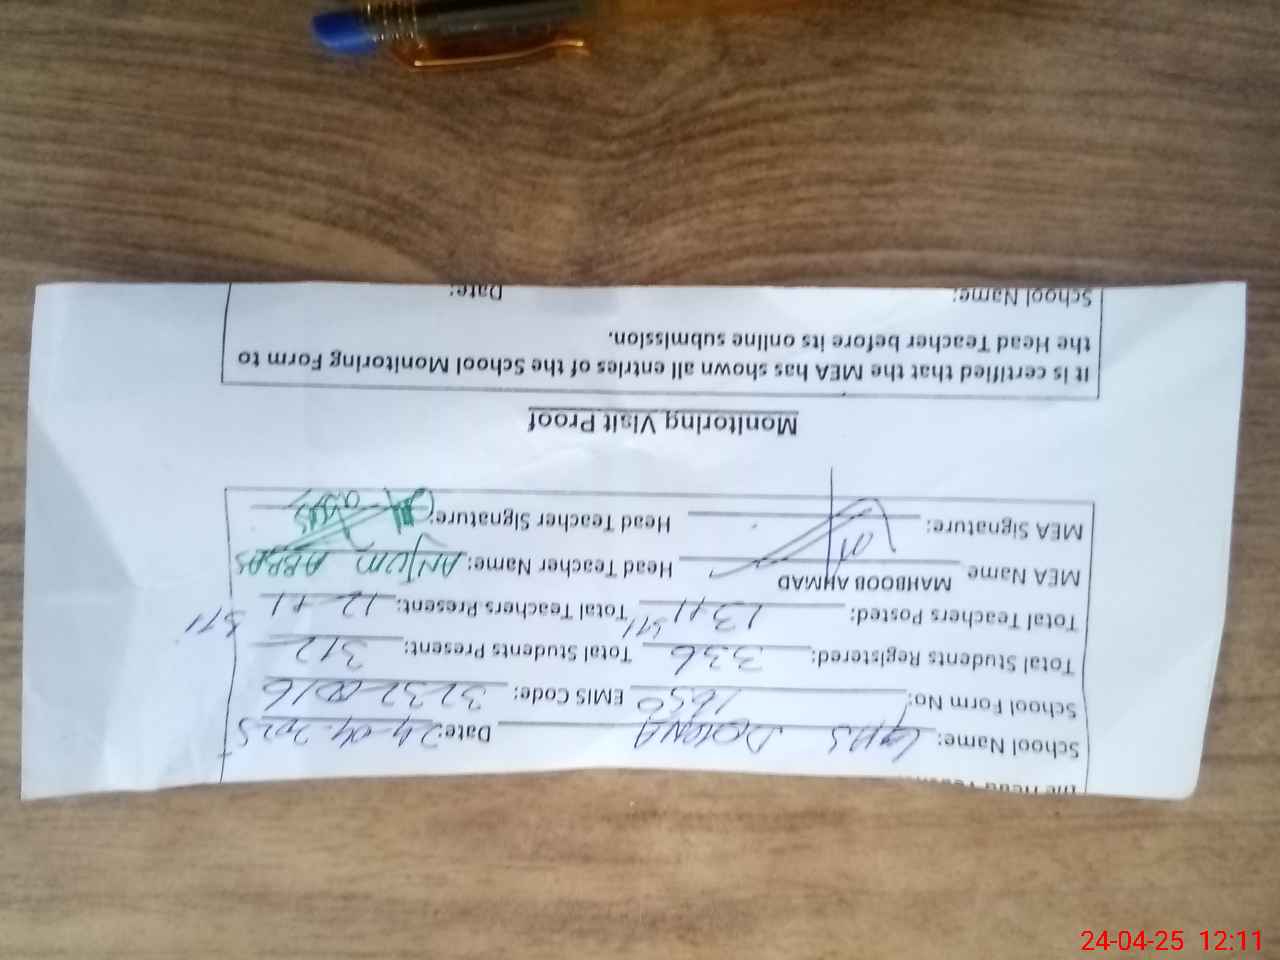 the Head Teac
School Name: GHS DOLONA Date: 24-04-2025
School Form No: 1650 EMIS Code: 32320016
Total Students Registered: 336 Total Students Present: 312
Total Teachers Posted: 13+1 STI Total Teachers Present: 12+1 STI
MEA Name MAHBOOB AHMAD Head Teacher Name: ANJUM ABBAS
MEA Signature: Head Teacher Signature:
Monitoring Visit Proof
It is certified that the MEA has shown all entries of the School Monitoring Form to
the Head Teacher before its online submission.
School Name: Date:
24-04-25 12:11